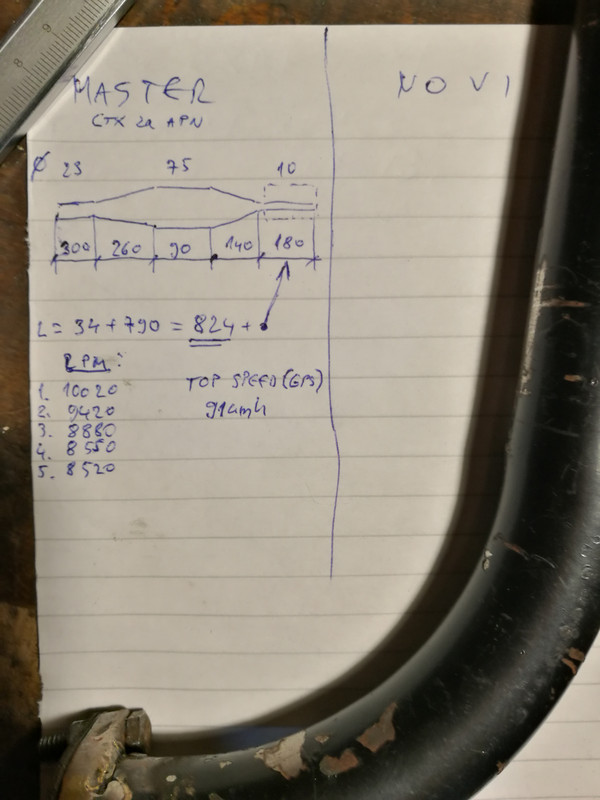 MASTER
CTX za APN
Ø 23 75 10
300 260 90 140 180
L = 34 + 790 = 824 +
RPM:
1. 10020
2. 9420
3. 8880
4. 8550
5. 8520
TOP SPEED (GPS)
91 km/h
NOVI
9
8